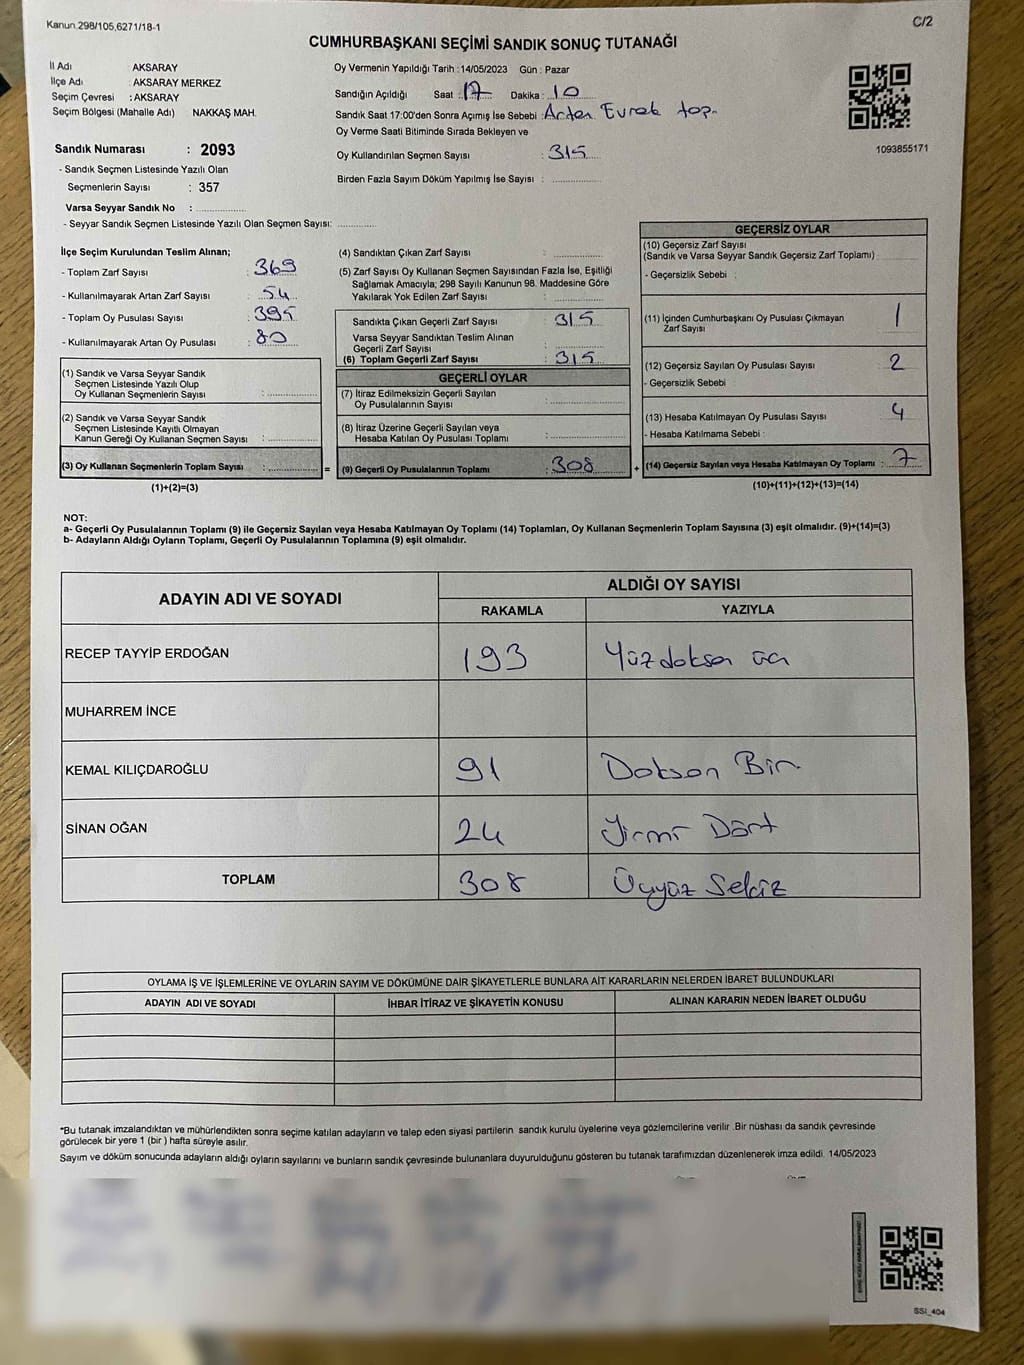 Kanun.298/105,6271/18-1
C/2
CUMHURBAŞKANI SEÇİMİ SANDIK SONUÇ TUTANAĞI
İl Adı : AKSARAY
İlçe Adı : AKSARAY MERKEZ
Seçim Çevresi : AKSARAY
Seçim Bölgesi (Mahalle Adı) NAKKAŞ MAH.
Sandık Numarası : 2093
- Sandık Seçmen Listesinde Yazılı Olan
Seçmenlerin Sayısı : 357
Varsa Seyyar Sandık No :
- Seyyar Sandık Seçmen Listesinde Yazılı Olan Seçmen Sayısı:
Oy Vermenin Yapıldığı Tarih :14/05/2023 Gün : Pazar
Sandığın Açıldığı Saat : 17 Dakika : 10
Sandık Saat 17:00'den Sonra Açımış İse Sebebi : Artan Evrak top.
Oy Verme Saati Bitiminde Sırada Bekleyen ve
Oy Kullandırılan Seçmen Sayısı : 315
Birden Fazla Sayım Döküm Yapılmış İse Sayısı :
1093855171
İlçe Seçim Kurulundan Teslim Alınan;
- Toplam Zarf Sayısı : 369
- Kullanılmayarak Artan Zarf Sayısı : 54
- Toplam Oy Pusulası Sayısı : 395
- Kullanılmayarak Artan Oy Pusulası : 80
(1) Sandık ve Varsa Seyyar Sandık
Seçmen Listesinde Yazılı Olup
Oy Kullanan Seçmenlerin Sayısı :
(2) Sandık ve Varsa Seyyar Sandık
Seçmen Listesinde Kayıtlı Olmayan
Kanun Gereği Oy Kullanan Seçmen Sayısı :
(3) Oy Kullanan Seçmenlerin Toplam Sayısı : =
(1)+(2)=(3)
(4) Sandıktan Çıkan Zarf Sayısı :
(5) Zarf Sayısı Oy Kullanan Seçmen Sayısından Fazla İse, Eşitliği
Sağlamak Amacıyla; 298 Sayılı Kanunun 98. Maddesine Göre
Yakılarak Yok Edilen Zarf Sayısı :
Sandıkta Çıkan Geçerli Zarf Sayısı : 315
Varsa Seyyar Sandıktan Teslim Alınan
Geçerli Zarf Sayısı :
(6) Toplam Geçerli Zarf Sayısı : 315
GEÇERLİ OYLAR
(7) İtiraz Edilmeksizin Geçerli Sayılan
Oy Pusulalarının Sayısı :
(8) İtiraz Üzerine Geçerli Sayılan veya
Hesaba Katılan Oy Pusulası Toplamı :
(9) Geçerli Oy Pusulalarının Toplamı : 308 +
GEÇERSİZ OYLAR
(10) Geçersiz Zarf Sayısı
(Sandık ve Varsa Seyyar Sandık Geçersiz Zarf Toplamı)
- Geçersizlik Sebebi :
(11) İçinden Cumhurbaşkanı Oy Pusulası Çıkmayan
Zarf Sayısı 1
(12) Geçersiz Sayılan Oy Pusulası Sayısı : 2
- Geçersizlik Sebebi
(13) Hesaba Katılmayan Oy Pusulası Sayısı : 4
- Hesaba Katılmama Sebebi :
(14) Geçersiz Sayılan veya Hesaba Katılmayan Oy Toplamı : 7
(10)+(11)+(12)+(13)=(14)
NOT:
a- Geçerli Oy Pusulalarının Toplamı (9) ile Geçersiz Sayılan veya Hesaba Katılmayan Oy Toplamı (14) Toplamları, Oy Kullanan Seçmenlerin Toplam Sayısına (3) eşit olmalıdır. (9)+(14)=(3)
b- Adayların Aldığı Oyların Toplamı, Geçerli Oy Pusulalarının Toplamına (9) eşit olmalıdır.
ADAYIN ADI VE SOYADI
ALDIĞI OY SAYISI
RAKAMLA YAZIYLA
RECEP TAYYİP ERDOĞAN 193 Yüzdoksan üç
MUHARREM İNCE
KEMAL KILIÇDAROĞLU 91 Doksan Bir
SİNAN OĞAN 24 Yirmi Dört
TOPLAM 308 Üçyüz Sekiz
OYLAMA İŞ VE İŞLEMLERİNE VE OYLARIN SAYIM VE DÖKÜMÜNE DAİR ŞİKAYETLERLE BUNLARA AİT KARARLARIN NELERDEN İBARET BULUNDUKLARI
ADAYIN ADI VE SOYADI İHBAR İTİRAZ VE ŞİKAYETİN KONUSU ALINAN KARARIN NEDEN İBARET OLDUĞU
"Bu tutanak imzalandıktan ve mühürlendikten sonra seçime katılan adayların ve talep eden siyasi partilerin sandık kurulu üyelerine veya gözlemcilerine verilir .Bir nüshası da sandık çevresinde
görülecek bir yere 1 (bir ) hafta süreyle asılır.
Sayım ve döküm sonucunda adayların aldığı oyların sayılarını ve bunların sandık çevresinde bulunanlara duyurulduğunu gösteren bu tutanak tarafımızdan düzenlenerek imza edildi. 14/05/2023
SSI_404